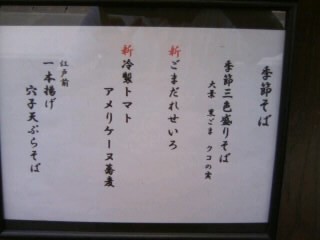 季節そば
季節三色盛りそば
大葉 黒ごま クコの実
新ごまだれせいろ
新冷製トマト
アメリケーヌ蕎麦
江戸前
一本揚げ
穴子天ぷらそば